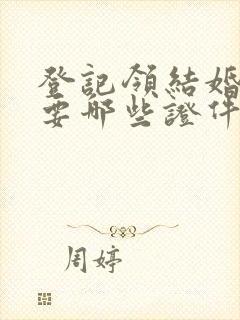 登記領結婚
要哪些證件
周婷